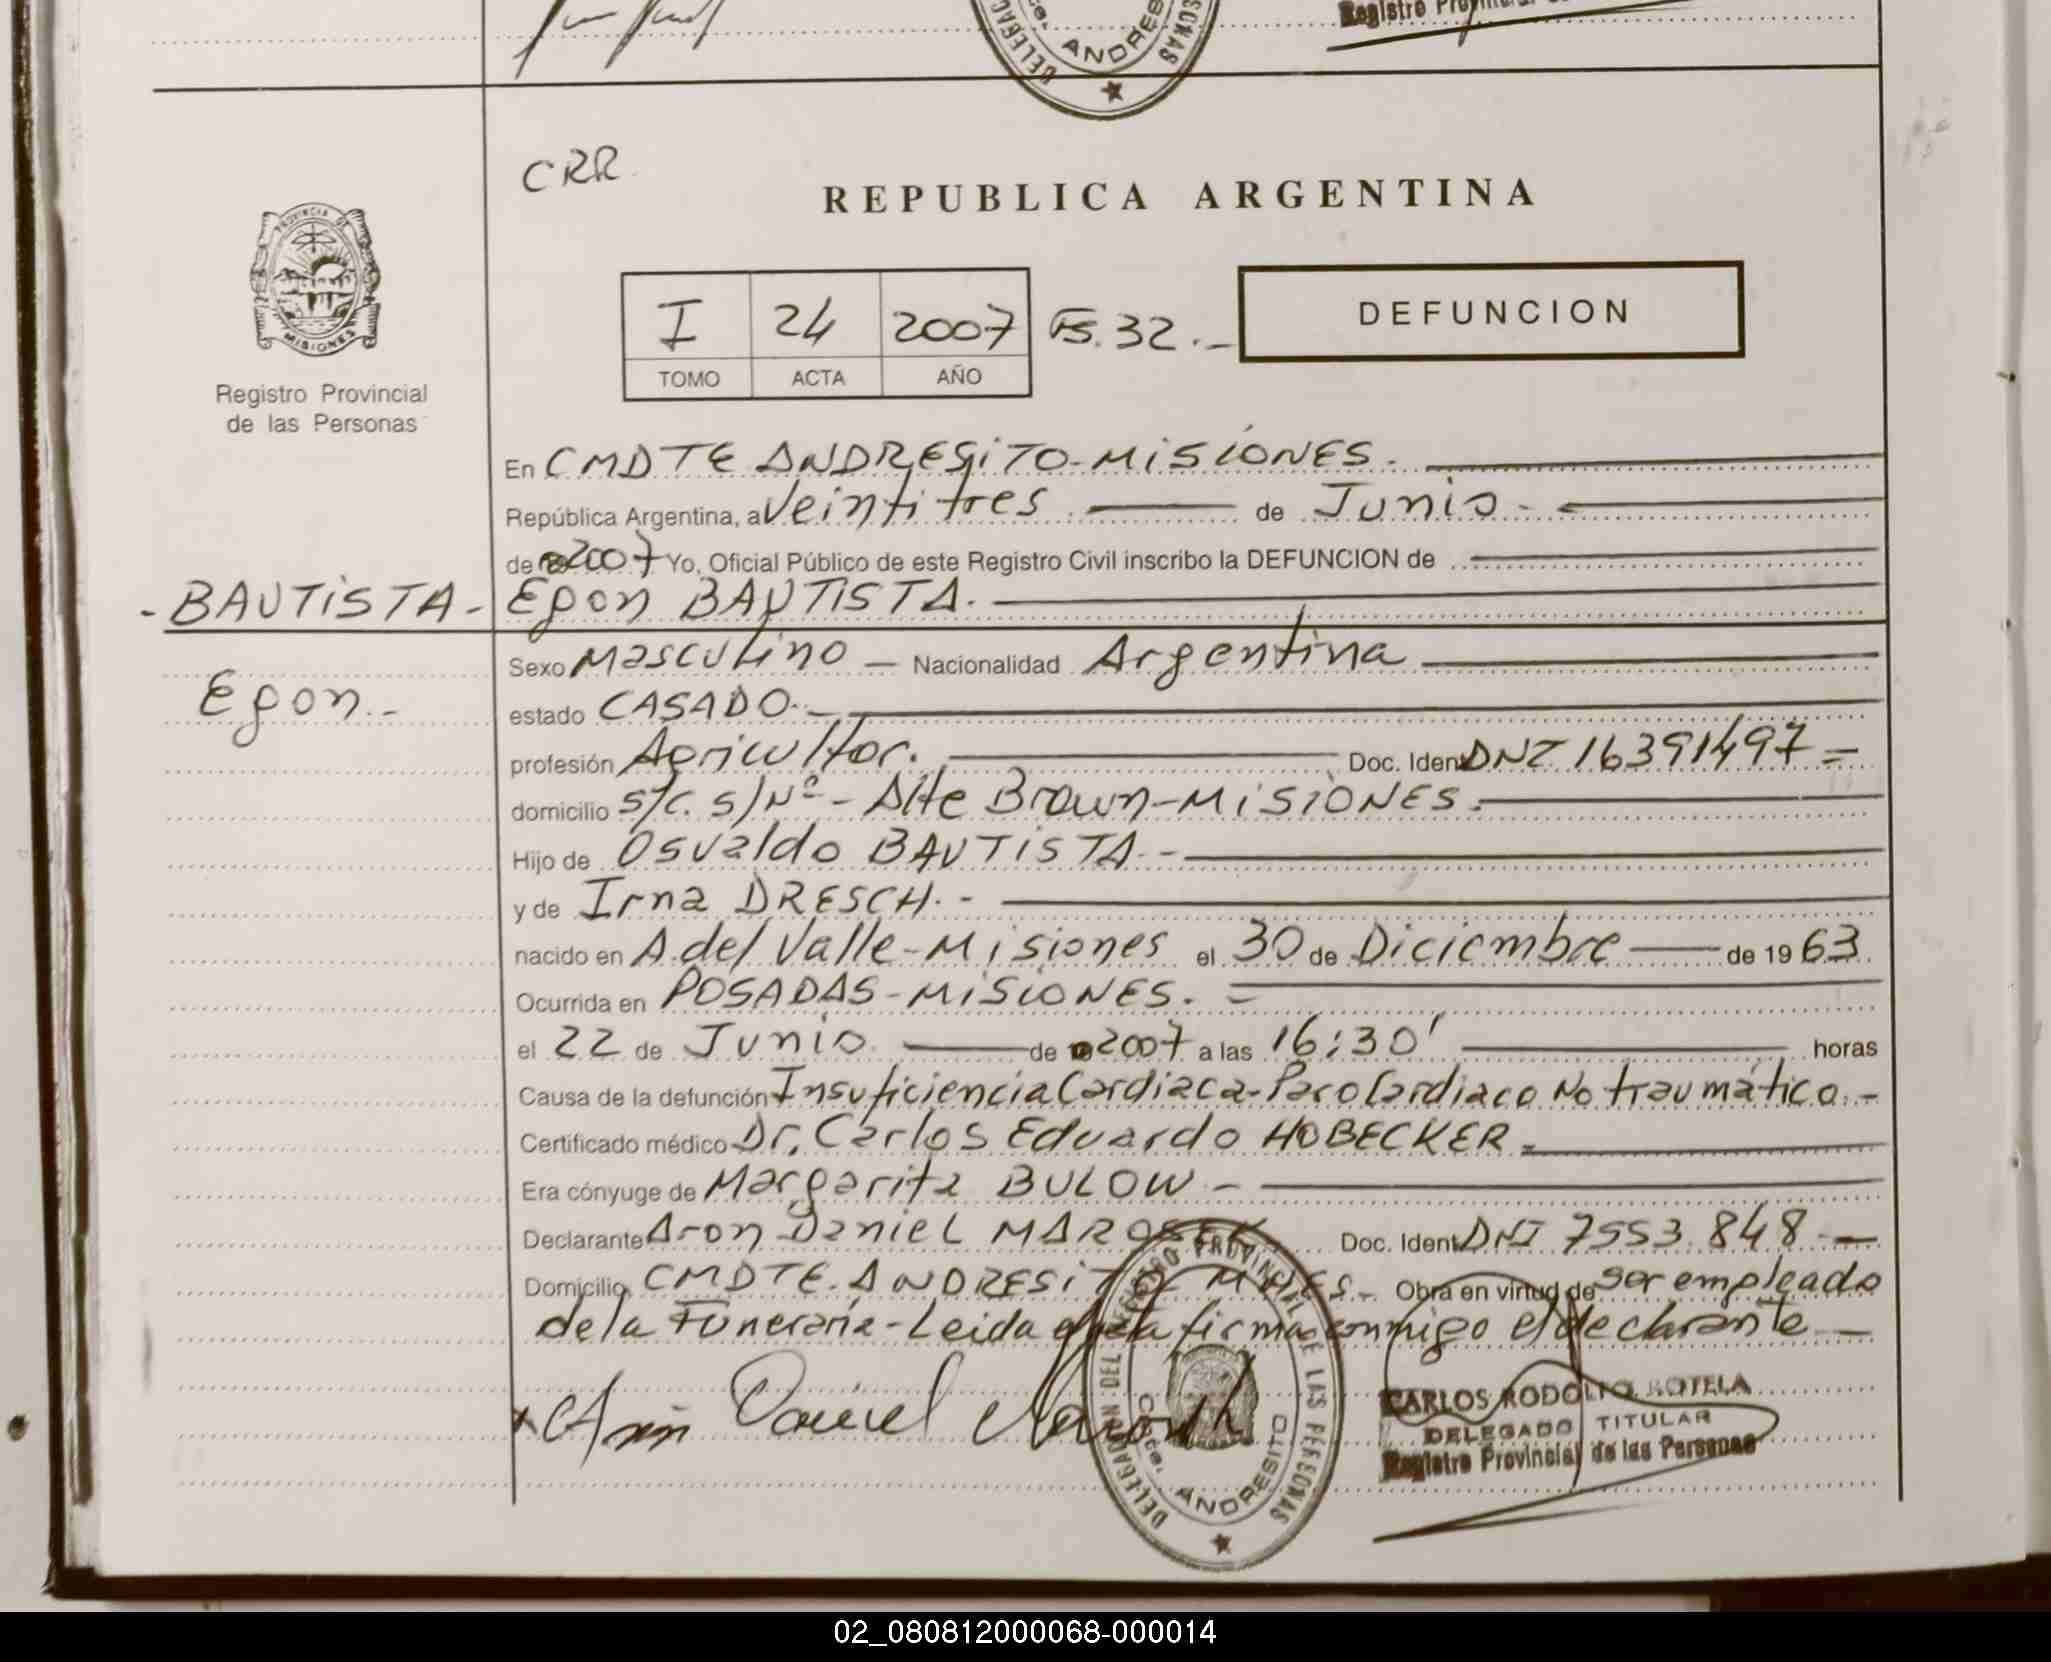 Registro
DELEGAC
SONAS
ANDRES
CRR
REPUBLICA ARGENTINA
PROVINCIA DE
MISIONES
Registro Provincial
de las Personas
I 24 2007 Fs. 32.-
TOMO ACTA AÑO
DEFUNCION
En CMDTE ANDRESITO-MISIONES.
República Argentina, a Veintitres de Junio.-
de 2007 Yo, Oficial Público de este Registro Civil inscribo la DEFUNCION de
-BAUTISTA- Egon BAUTISTA.
Sexo Masculino - Nacionalidad Argentina
Egon.-
estado CASADO.-
profesión Agricultor. Doc. Ident DNI 16391497=
domicilio S/C. S/Nº- Alte Brown-MISIONES.
Hijo de Osvaldo BAUTISTA.-
y de Irna DRESCH.-
nacido en A. del Valle-Misiones el 30 de Diciembre de 1963.
Ocurrida en POSADAS-MISIONES.-
el 22 de Junio de 2007 a las 16:30' horas
Causa de la defunción Insuficiencia Cardiaca-Paro Cardiaco No traumático.-
Certificado médico Dr. Carlos Eduardo HOBECKER.
Era cónyuge de Margarita BULOW-
Declarante Aron Daniel Doc. Ident DNI 7553.848-
Domicilio CMDTE. ANDRESITO MNES.- Obra en virtud de ser empleado
de la Funeraria-Leida el acta firma conmigo el declarante-
DELEGACION DEL REGISTRO PROVINCIAL DE LAS PERSONAS
Cmte. ANDRESITO
CARLOS RODOLFO ROTELA
DELEGADO TITULAR
Registro Provincial de las Personas
02_080812000068-000014